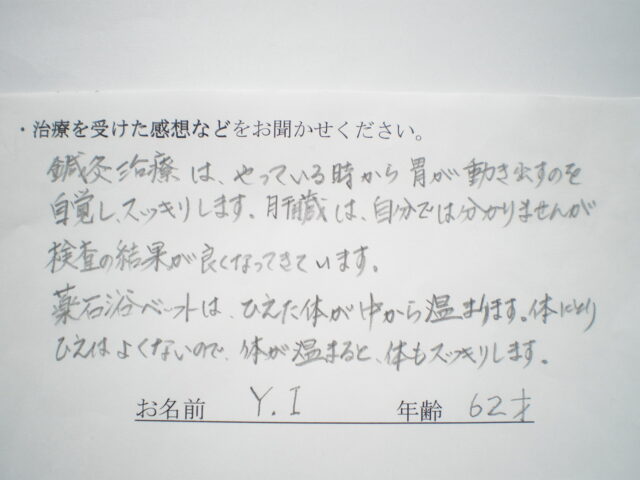 ・治療を受けた感想などをお聞かせください。
鍼灸治療は、やっている時から胃が動き出すのを
自覚し、スッキリします。肝臓は、自分では分かりませんが
検査の結果が良くなってきています。
薬石浴ベットは、ひえた体が中から温まります。体にとり
ひえはよくないので、体が温まると、体もスッキリします。
お名前 Y.I 年齢 62才